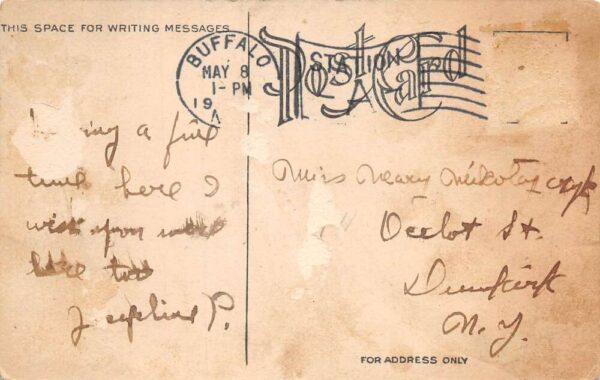 THIS SPACE FOR WRITING MESSAGES
BUFFALO
MAY 8
1-PM
19
STATION
A
Post Card
a fine
time here I
wish you were
here too
P.
Miss Mary
St.
Dunkirk
N.Y.
FOR ADDRESS ONLY